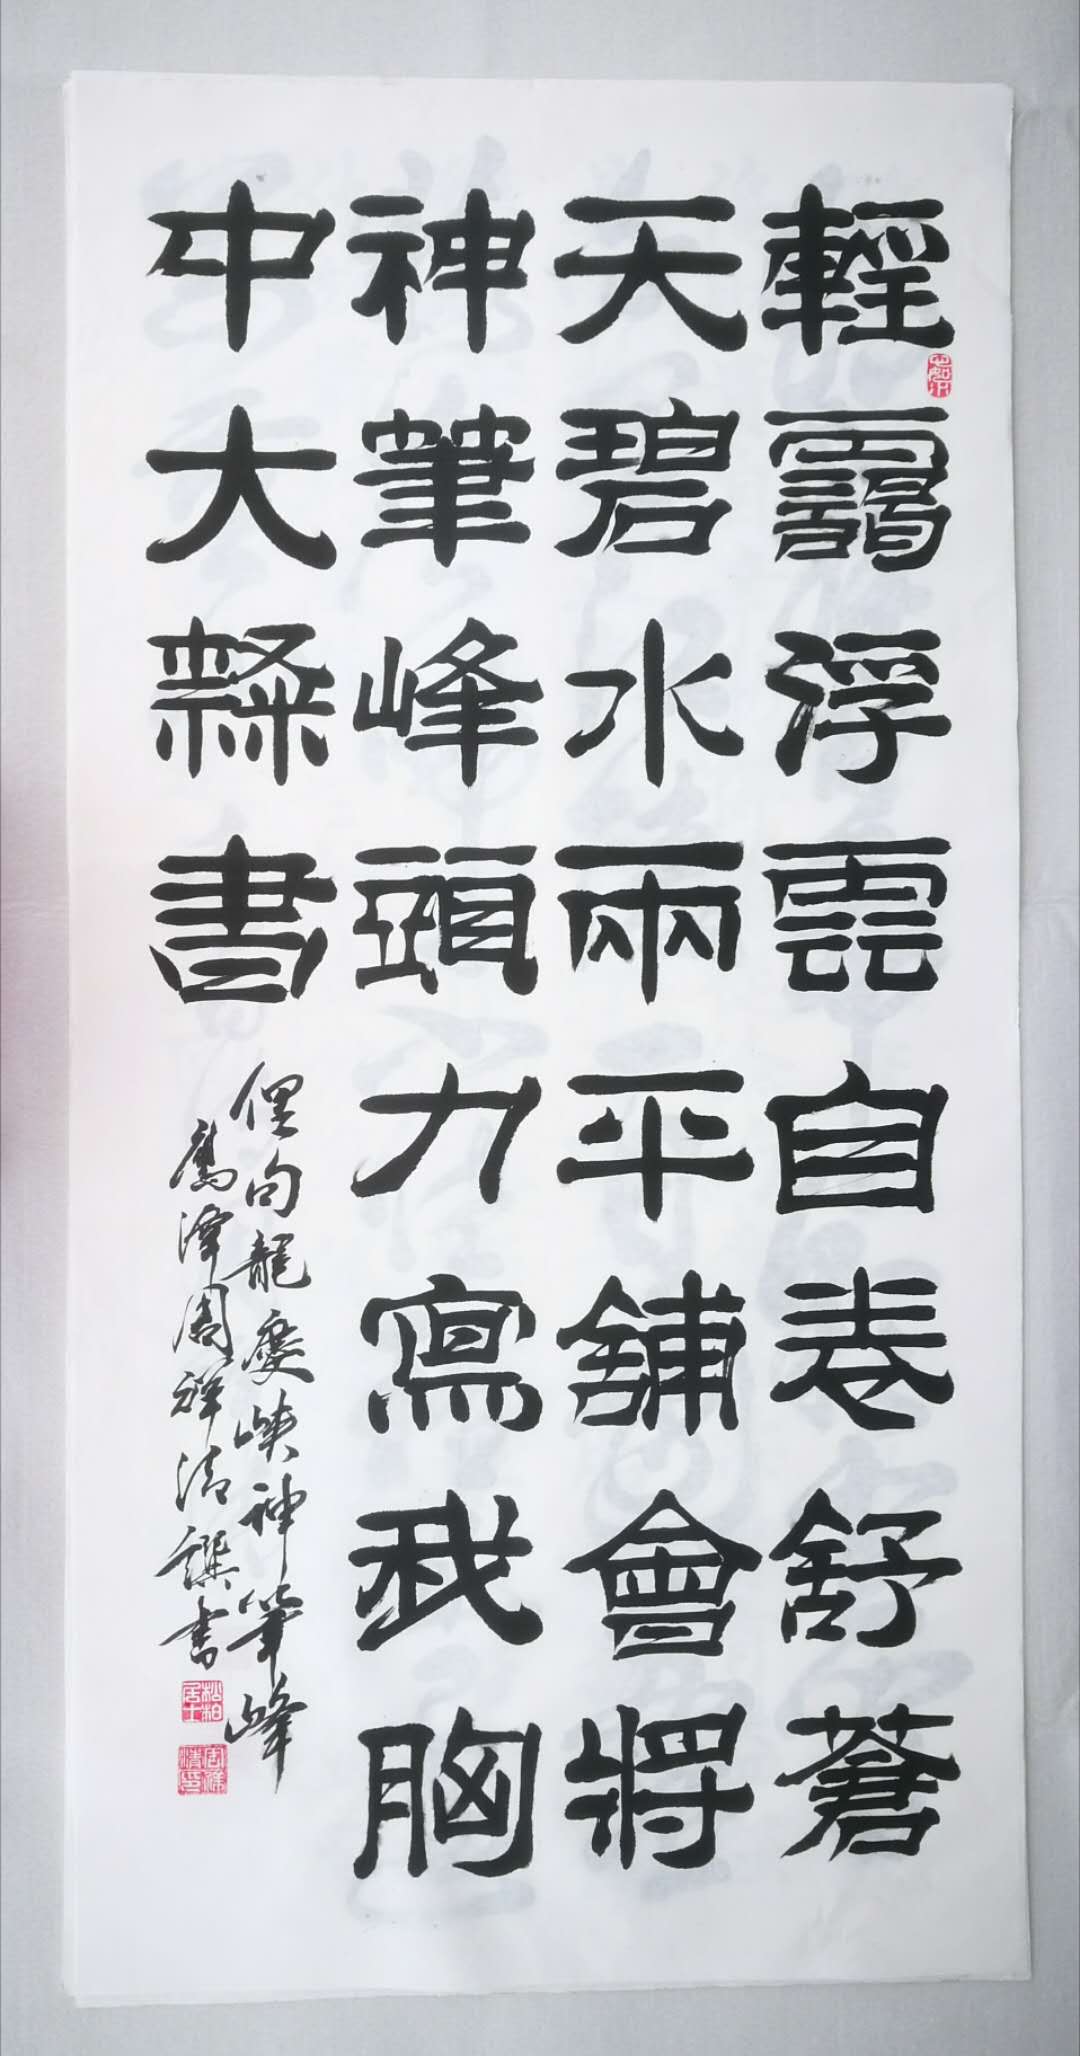 輕靄浮雲自卷舒蒼
天碧水兩平鋪會將
神筆峰頭力寫我胸
中大隸書
俚句龍慶峽神筆峰
鷹潭周祥清撰書
松柏居士
周祥清印